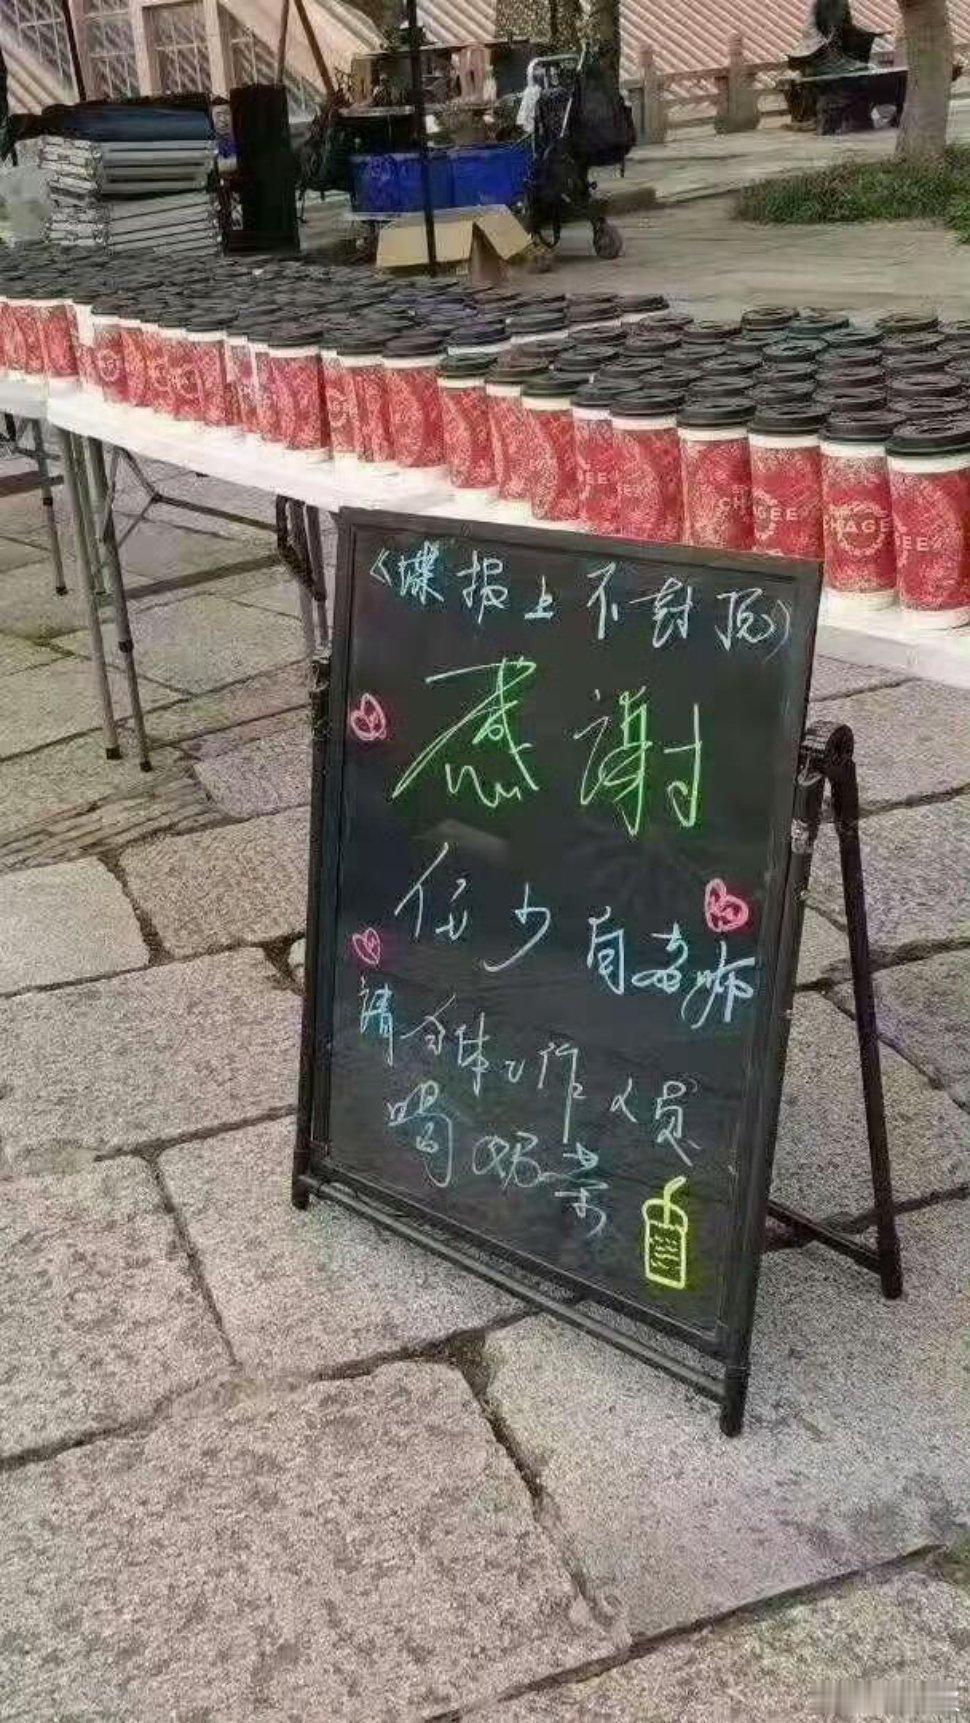 CHAGEE
CHAGEE
《諜报上不封顶》
感謝
任少白老师
請全体工作人员
喝奶茶